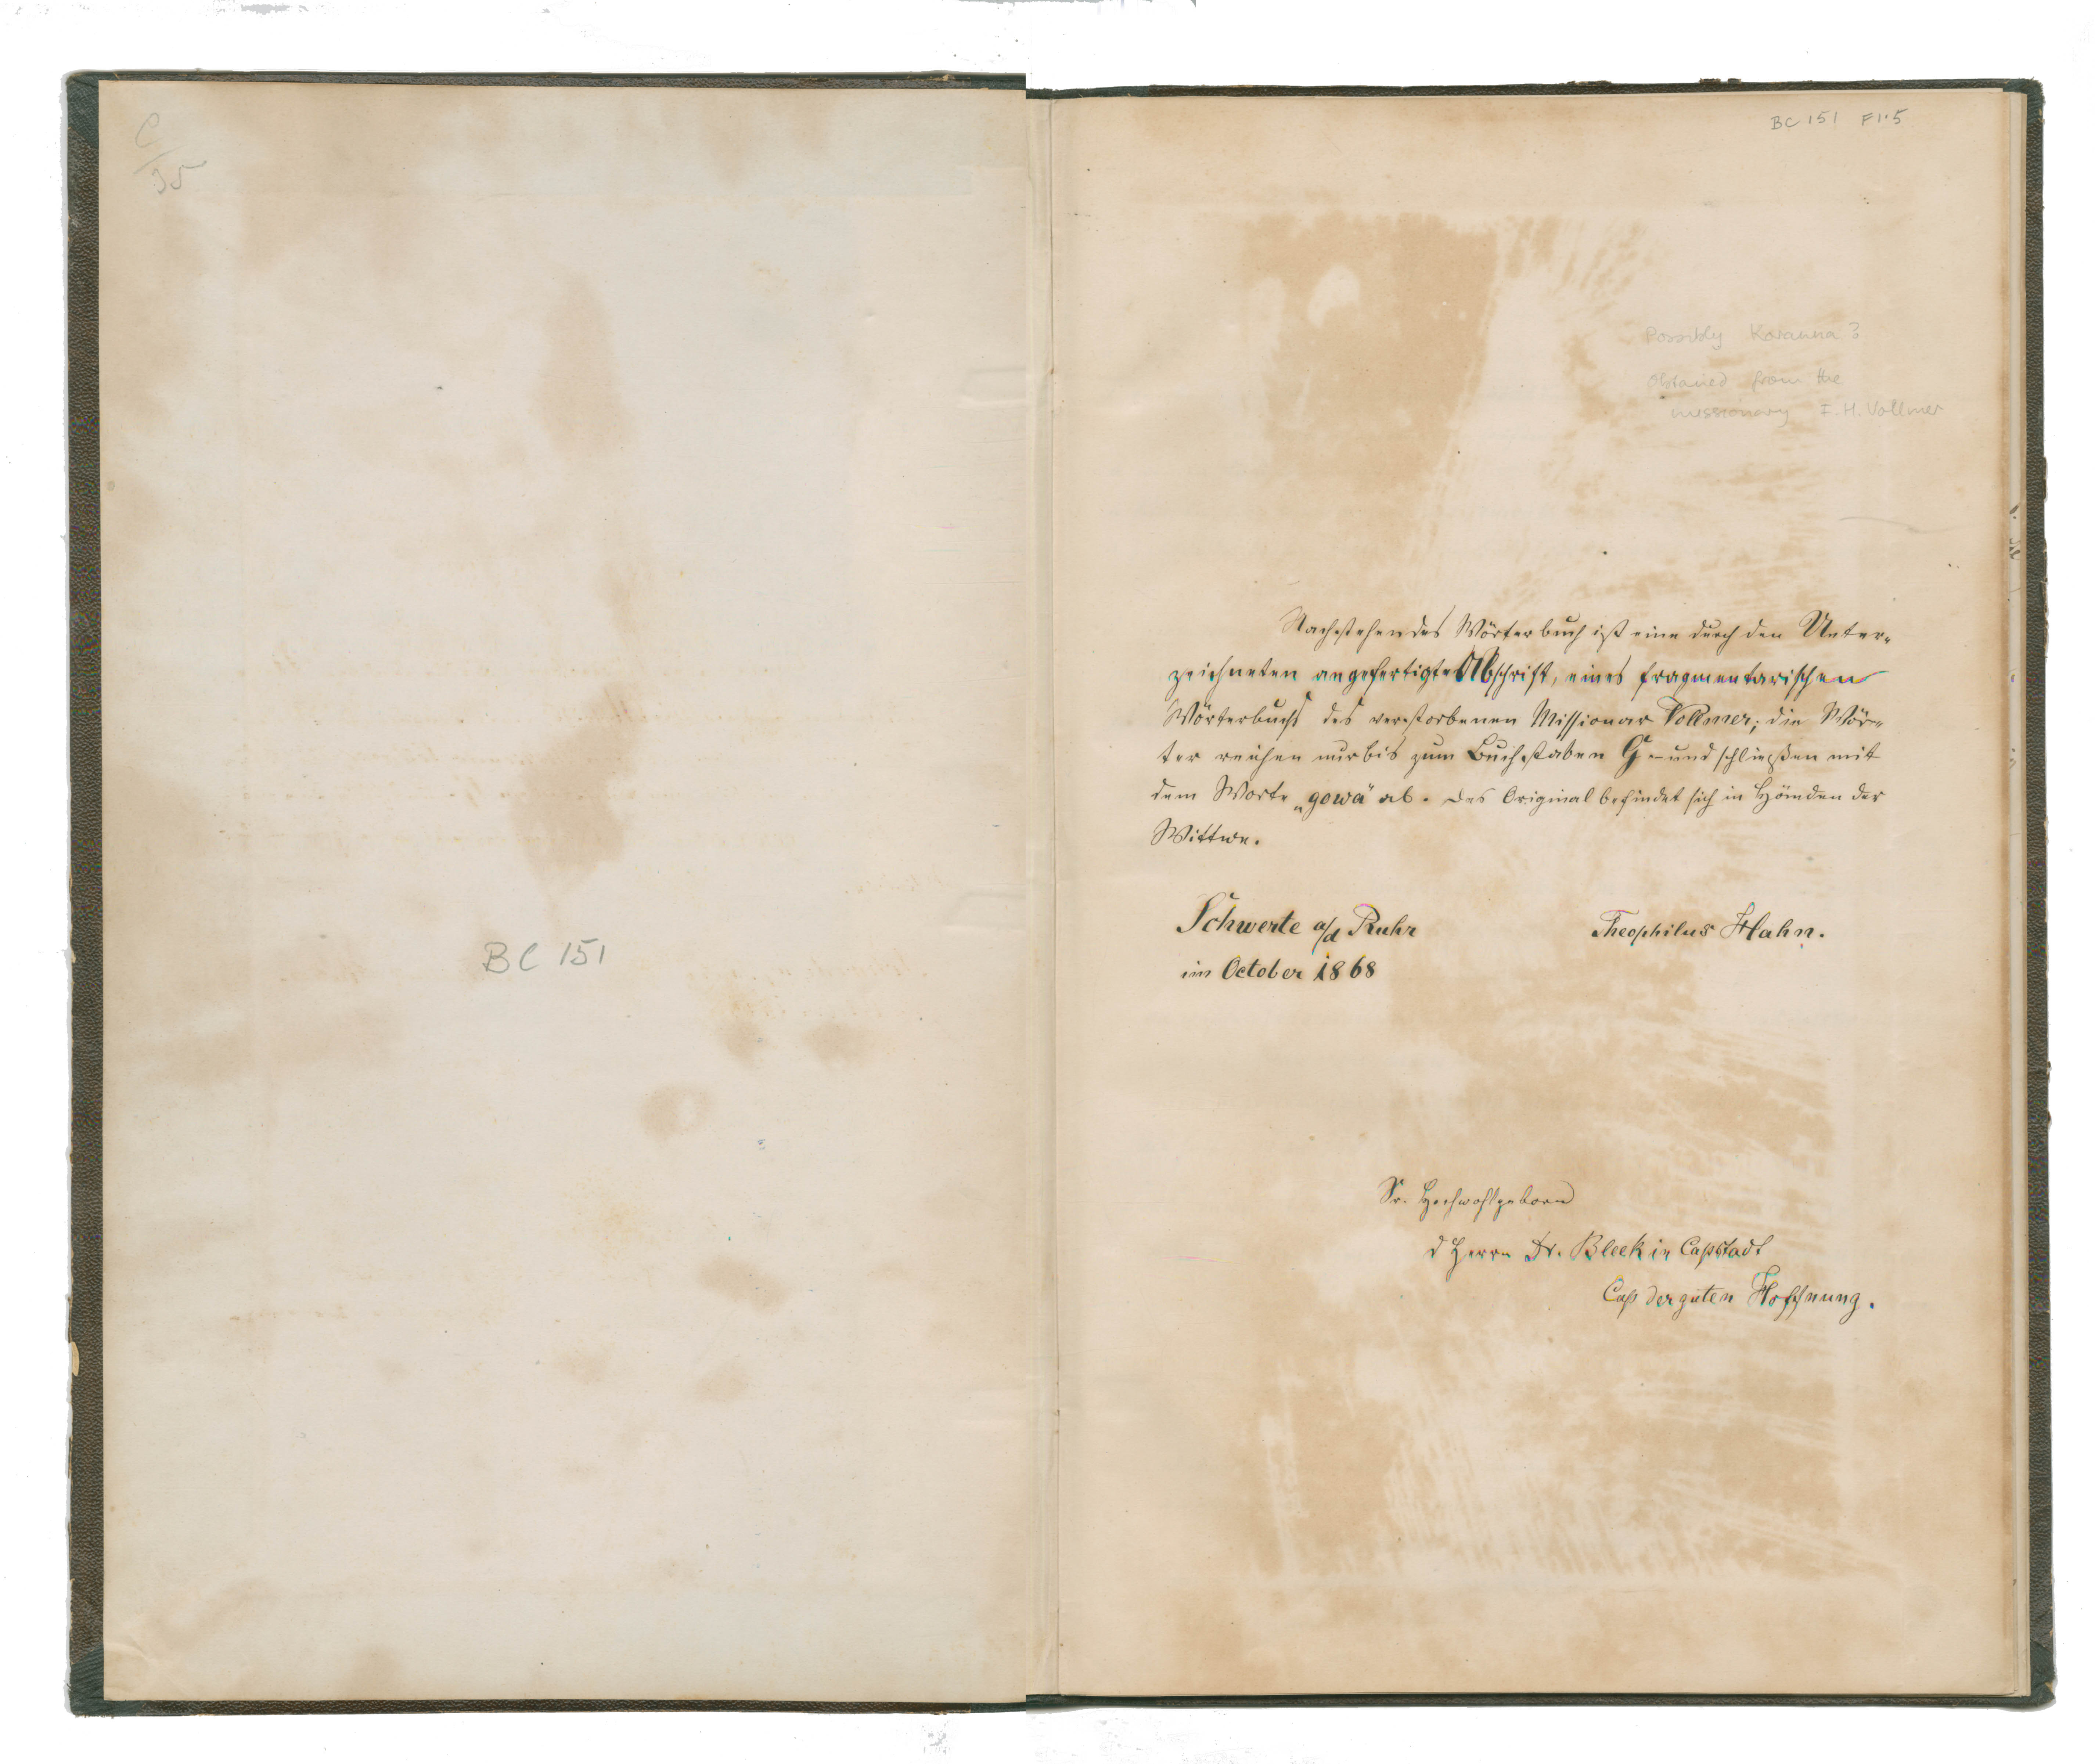 C/35
BC 151
BC 151 F1.5
Possibly Koranna?
Obtained from the
missionary F. H. Vollmer
Nachstehendes Wörterbuch ist eine durch den Unter-
zeichneten angefertigte Abschrift, eines fragmentarischen
Wörterbuchs des verstorbenen Missionar Vollmer; die Wör-
ter reichen nur bis zum Buchstaben G – und schließen mit
dem Worte „gowa“ ab. Das Original befindet sich in Händen der
Wittwe.
Schwerte a/d Ruhr Theophilus Hahn.
im October 1868
Sr. Hochwohlgeborn
d Herrn Dr. Bleek in Capstadt
Cap der guten Hoffnung.